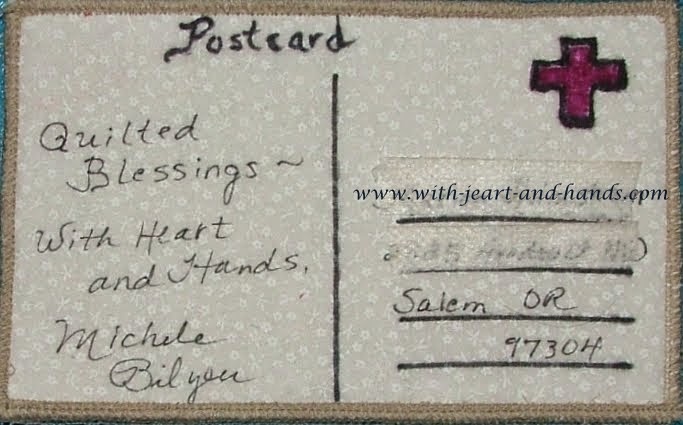 Postcard
Quilted
Blessings ~
With Heart
and Hands,
Michele
Bilyeu
www.with-jeart-and-hands.com
Salem OR
97304